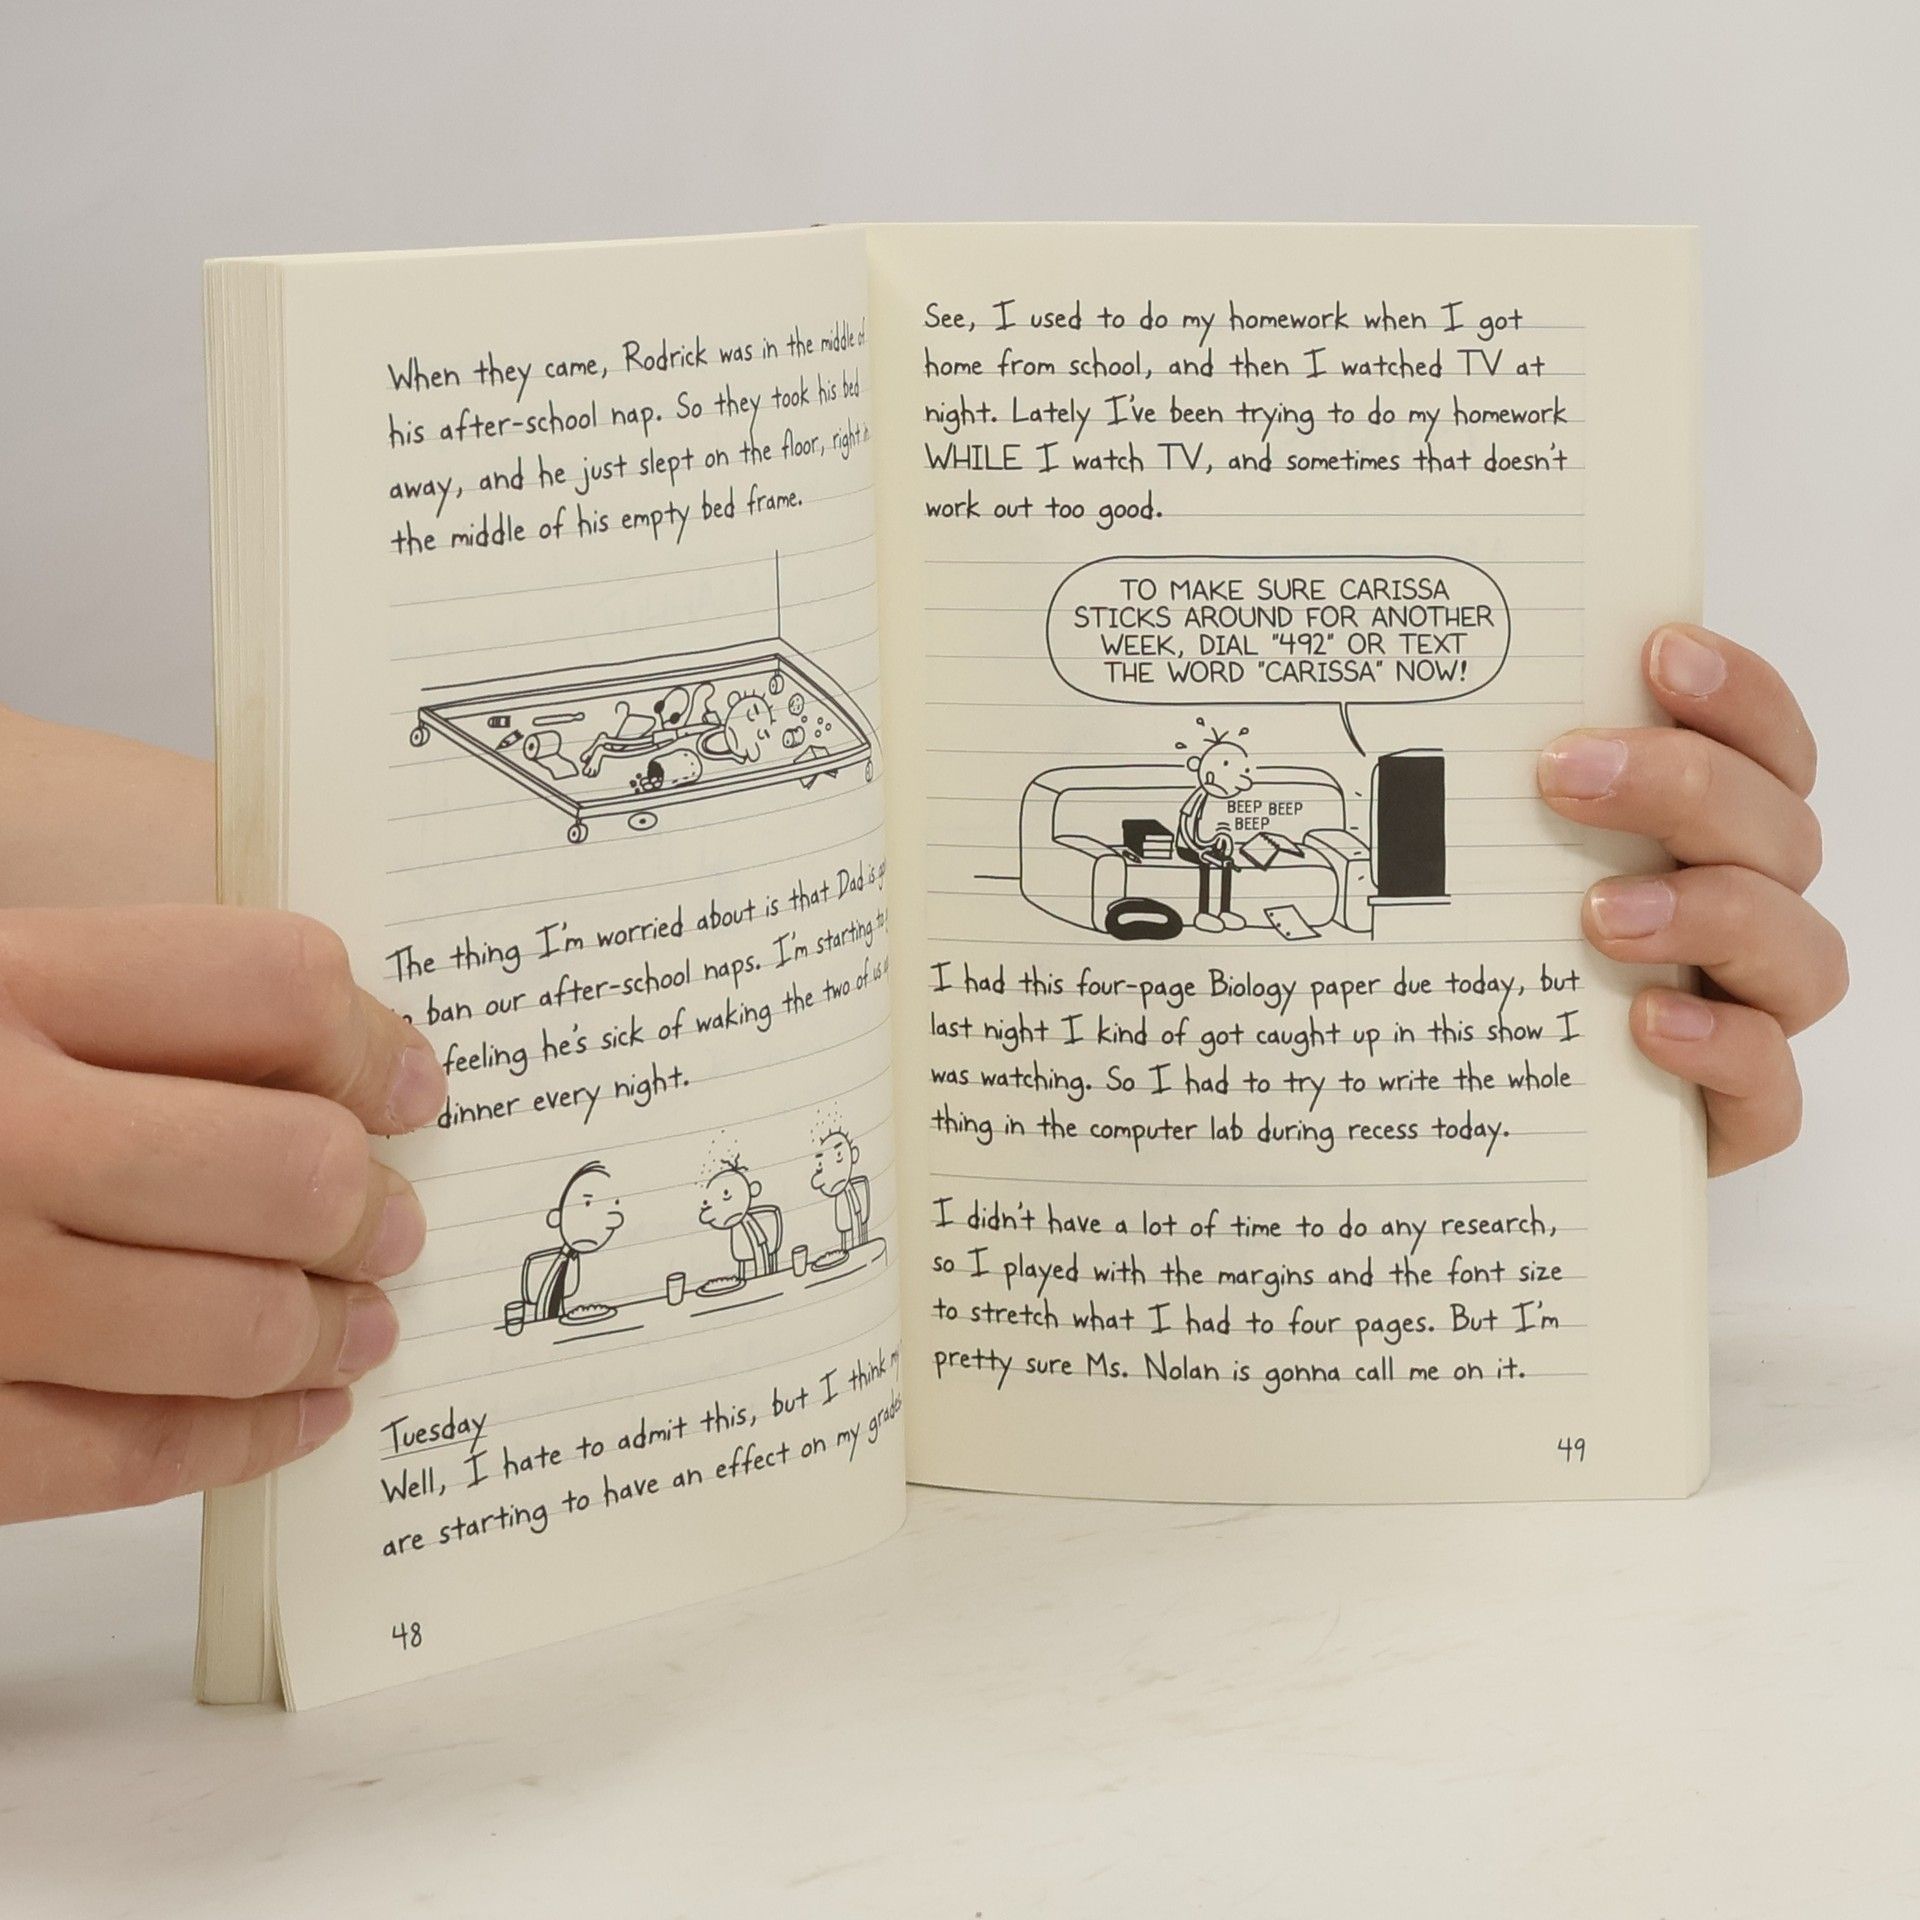 When they came, Rodrick was in the middle of
his after-school nap. So they took his bed
away, and he just slept on the floor, right in
the middle of his empty bed frame.
The thing I'm worried about is that Dad is
ban our after-school naps. I'm starting to
feeling he's sick of waking the two of us
dinner every night.
Tuesday
Well, I hate to admit this, but I think my
are starting to have an effect on my grades
48
See, I used to do my homework when I got
home from school, and then I watched TV at
night. Lately I've been trying to do my homework
WHILE I watch TV, and sometimes that doesn't
work out too good.
TO MAKE SURE CARISSA
STICKS AROUND FOR ANOTHER
WEEK, DIAL "492" OR TEXT
THE WORD "CARISSA" NOW!
BEEP BEEP
BEEP
I had this four-page Biology paper due today, but
last night I kind of got caught up in this show I
was watching. So I had to try to write the whole
thing in the computer lab during recess today.
I didn't have a lot of time to do any research,
so I played with the margins and the font size
to stretch what I had to four pages. But I'm
pretty sure Ms. Nolan is gonna call me on it.
49